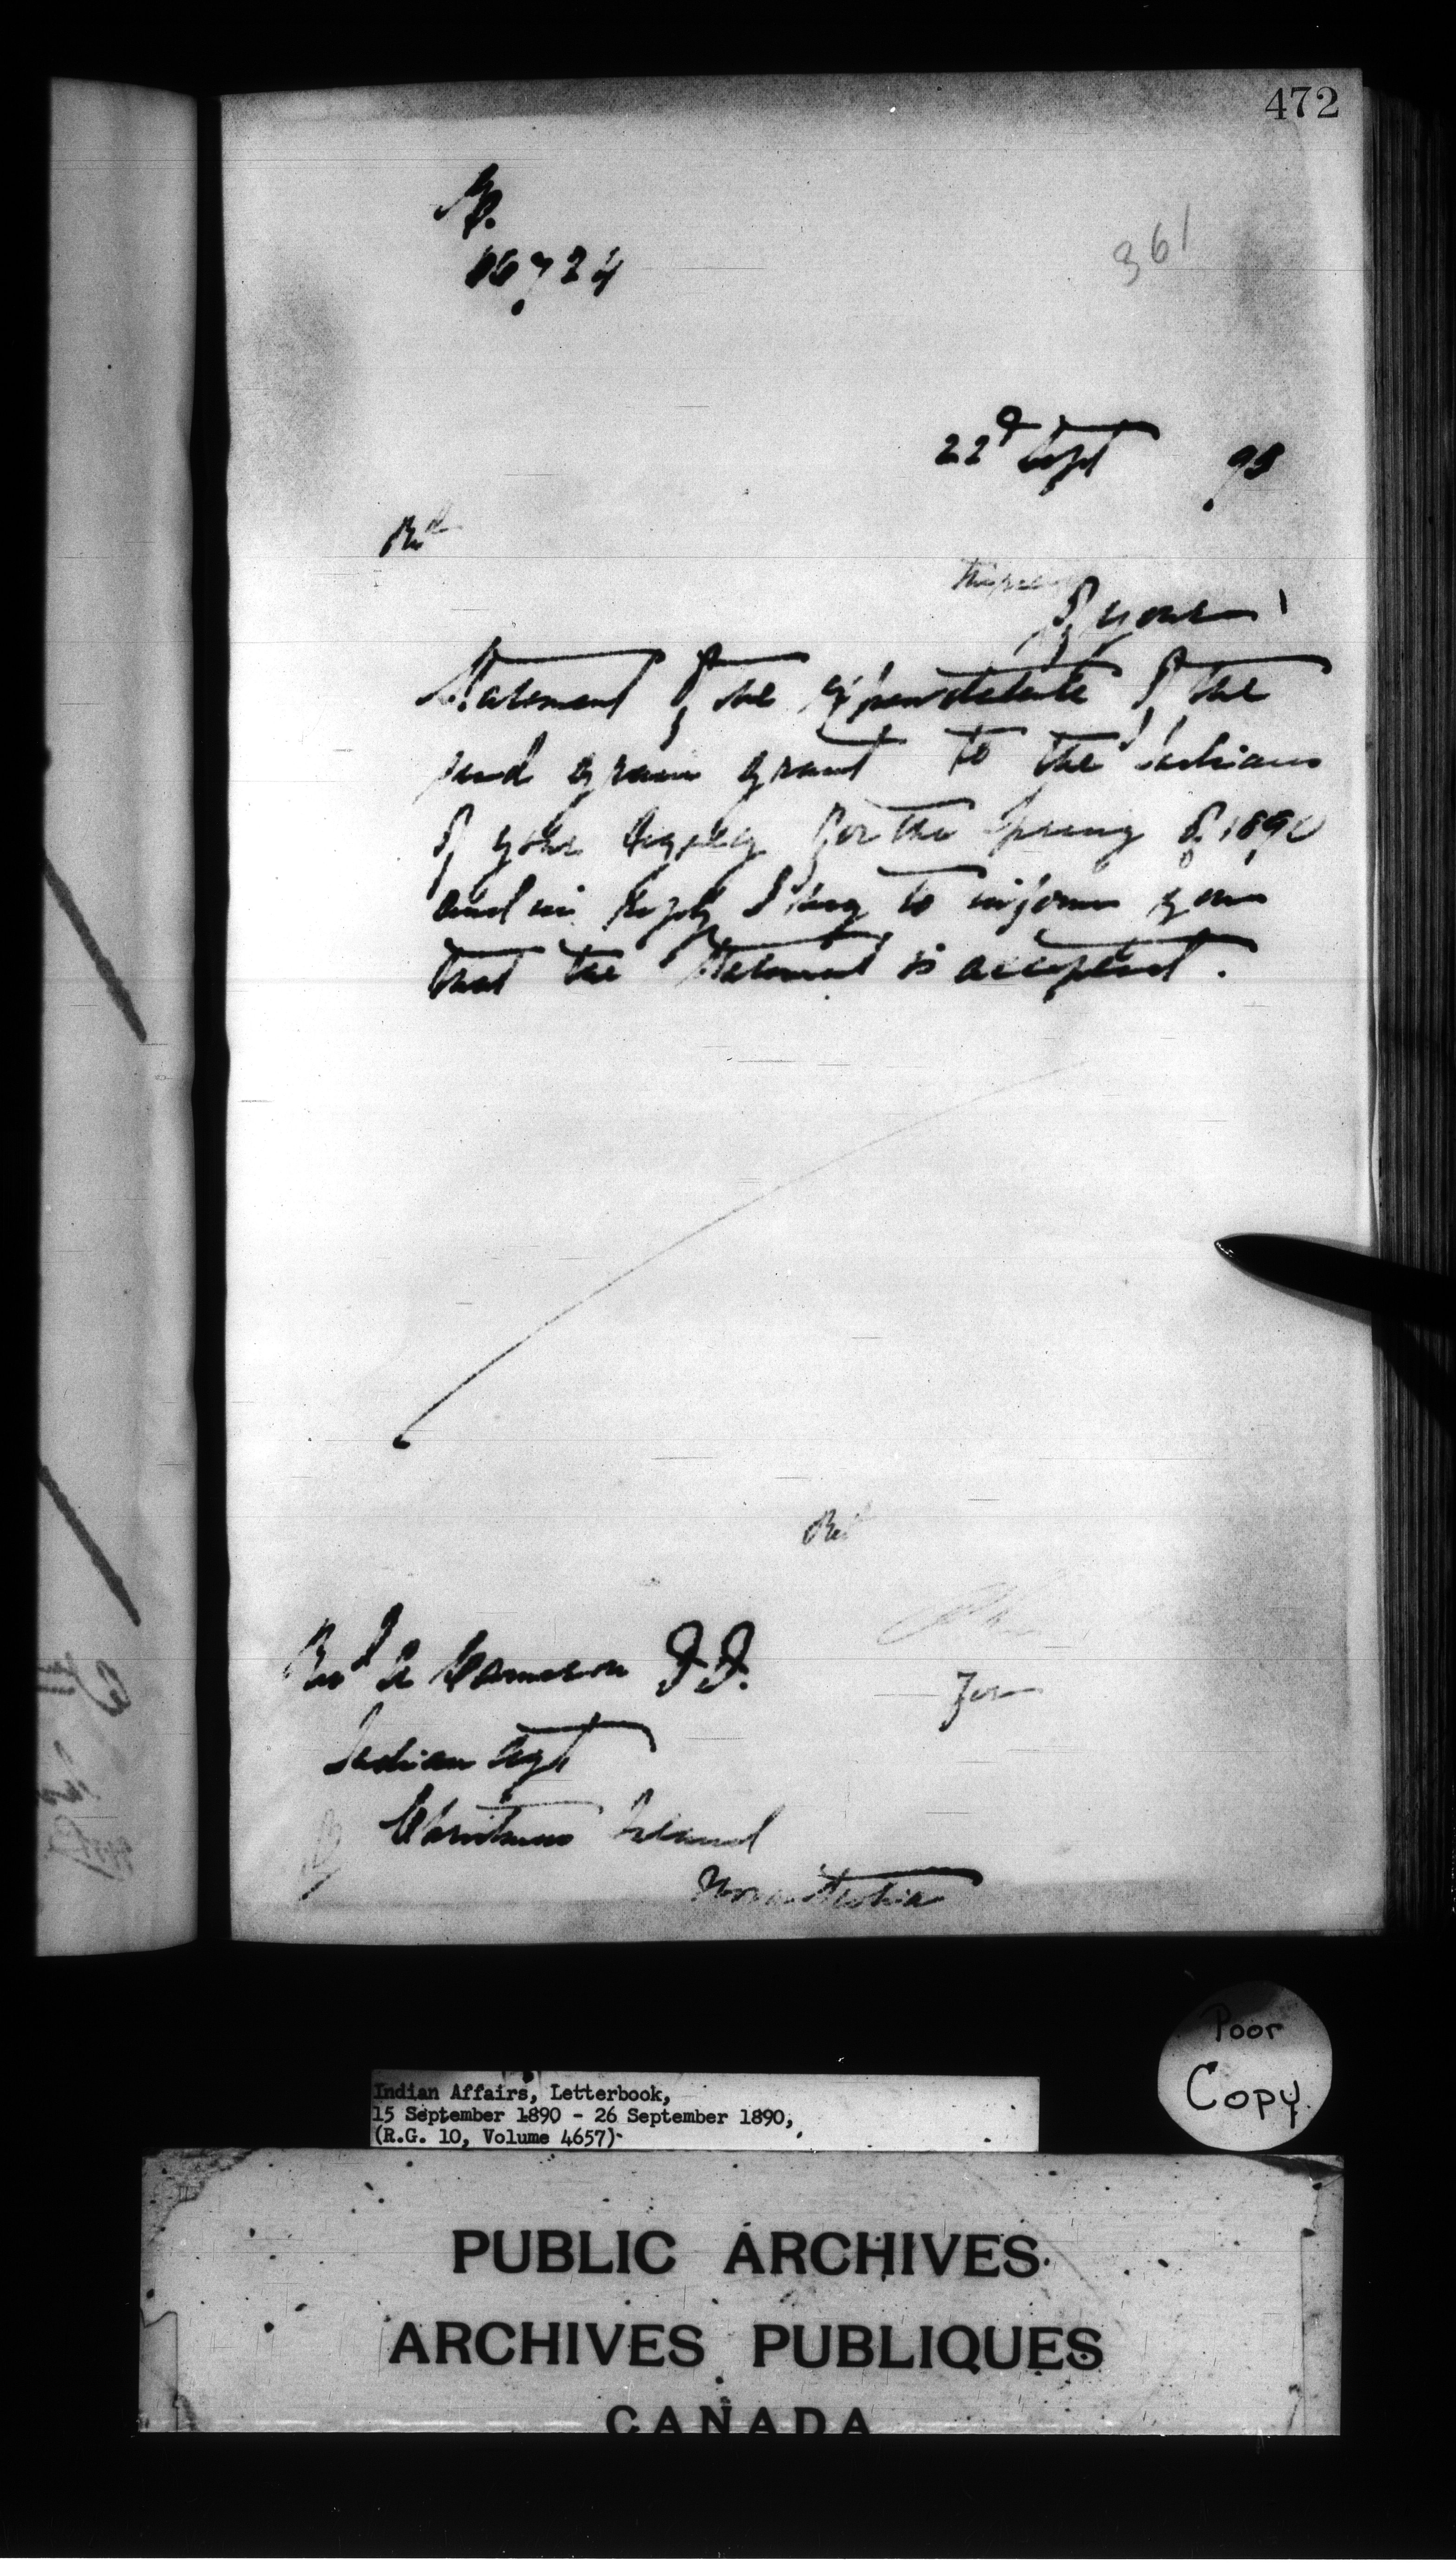 472
361
66724
22d Sept 90
Revd
of your
Statement of the expenditure of the
seed grain grant to the Indians
of your Agency for the Spring of 1890
and in reply I beg to inform you
that the Statement is accepted.
Revd
Revd A Cameron D.D.
for
Indian Agt
Christmas Island
Nova Scotia
Poor
Copy
Indian Affairs, Letterbook,
15 September 1890 - 26 September 1890,
(R.G. 10, Volume 4657)
PUBLIC ARCHIVES
ARCHIVES PUBLIQUES
CANADA